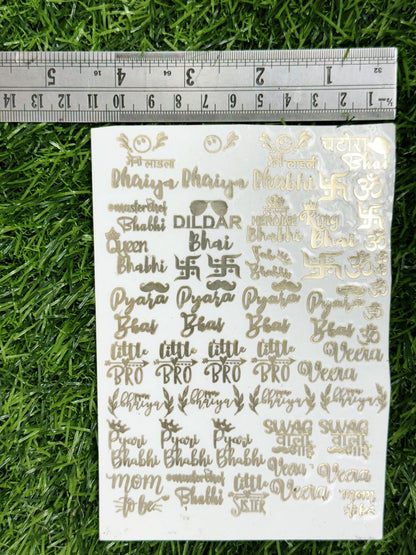 5 4 3 2 1
16 64 32
14 13 12 11 10 9 8 7 6 5 4 3 2 1
मेरो लाडला
Bhaiya Bhaiya Bhabhi
चटोरी
Bhabhi
masterchef
Bhabhi
DILDAR
Bhai
King
Bhai
Queen
Bhabhi
Bhabhi
Pyara Pyara Pyara Pyara
Bhai Bhai Bhai Bhai
little little little little
BRO BRO BRO BRO
Veera
Veera
bhriya bhriya bhriya bhriya
Pyari Pyari Pyari
Bhabhi Bhabhi Bhabhi
SWAG SWAG
वाली वाला
भाई
Veera Veera
Veera
MOM
to be
masterchef
Bhabhi
little
SISTER
mom
to be